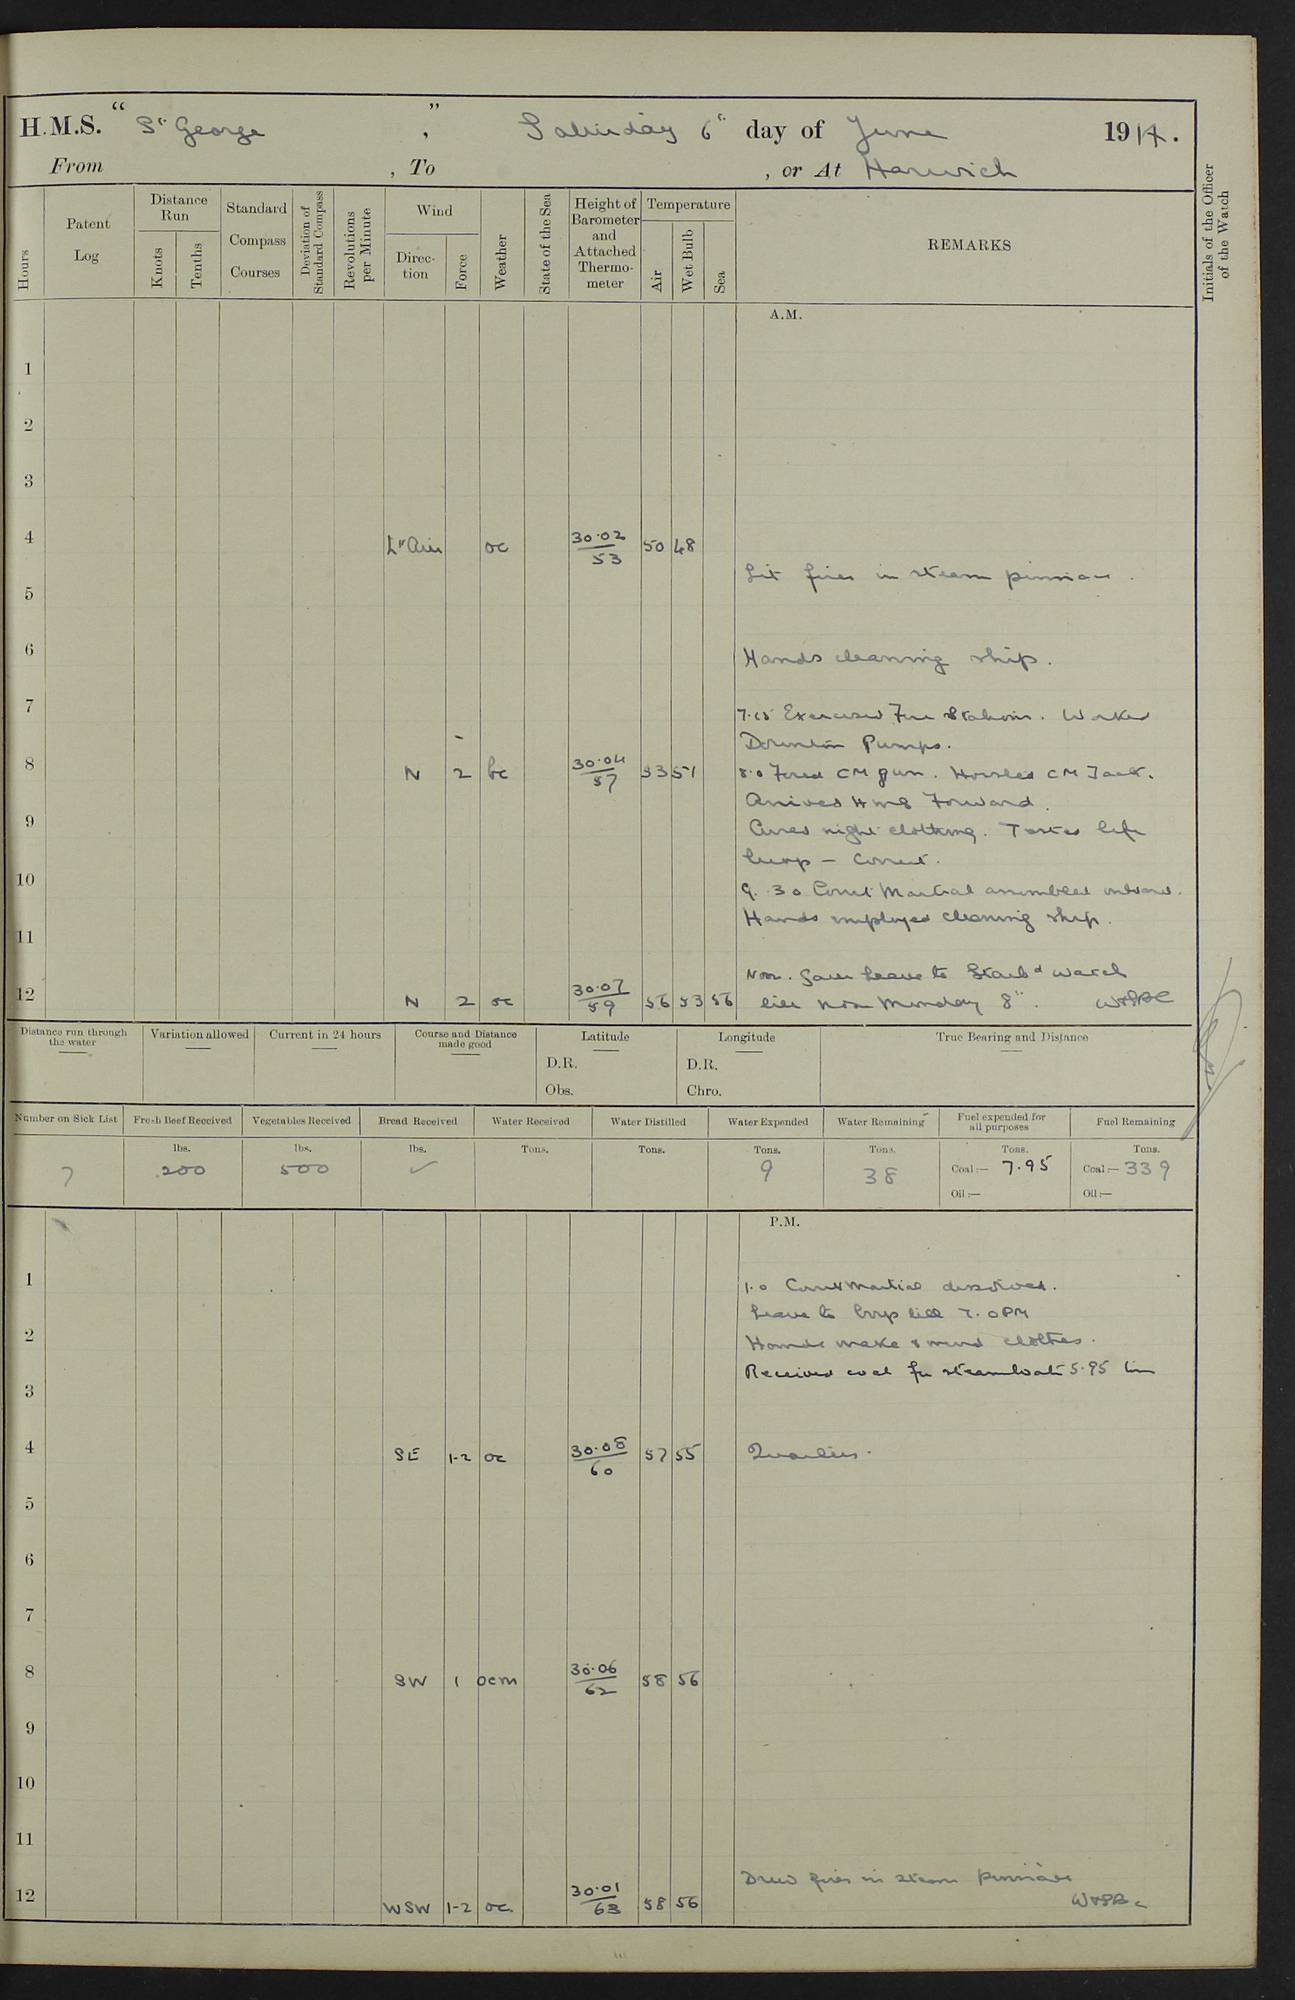 H.M.S. “ St George ” , Saturday 6th day of June 1914.
From , To , or At Harwich
Hours
Patent Log
Distance Run
Knots
Tenths
Standard Compass Courses
Deviation of Standard Compass
Revolutions per Minute
Wind
Direction
Force
Weather
State of the Sea
Height of Barometer and Attached Thermometer
Temperature
Air
Wet Bulb
Sea
REMARKS
Initials of the Officer of the Watch
A.M.
1
2
3
4 Lt Air oc 30.02/53 50 48
Lit fires in steam pinnace.
5
6
Hands cleaning ship.
7
7.15 Exercised Fire Stations. Worked
Downton Pumps.
8 N 2 bc 30.04/57 53 51
8.0 Fired CM gun. Hoisted CM Jack.
Arrived HMS Forward.
9
Aired night clothing. Tested life
buoys – correct.
10
9.30 Court Martial assembled onboard.
Hands employed cleaning ship.
11
Noon. Gave Leave to Starbd watch
12 N 2 oc 30.07/59 56 53 56 till noon Monday 8th.
Distance run through the water
Variation allowed
Current in 24 hours
Course and Distance made good
Latitude
D.R.
Obs.
Longitude
D.R.
Chro.
True Bearing and Distance
Number on Sick List
7
Fresh Beef Received
lbs.
200
Vegetables Received
lbs.
500
Bread Received
lbs.
✓
Water Received
Tons.
Water Distilled
Tons.
Water Expended
Tons.
9
Water Remaining
Tons.
38
Fuel expended for all purposes
Tons.
Coal :— 7.95
Oil :—
Fuel Remaining
Tons.
Coal :— 339
Oil :—
P.M.
1
1.0 Court Martial dissolved.
Leave to boys till 7.0 PM
2
Hands make & mend clothes.
Received coal for steamboats 5.95 tons
3
4 SE 1-2 oc 30.08/60 57 55 Quarters.
5
6
7
8 SW 1 ocm 30.06/62 58 56
9
10
11
Drew fires in steam pinnace
12 WSW 1-2 oc 30.01/63 58 56